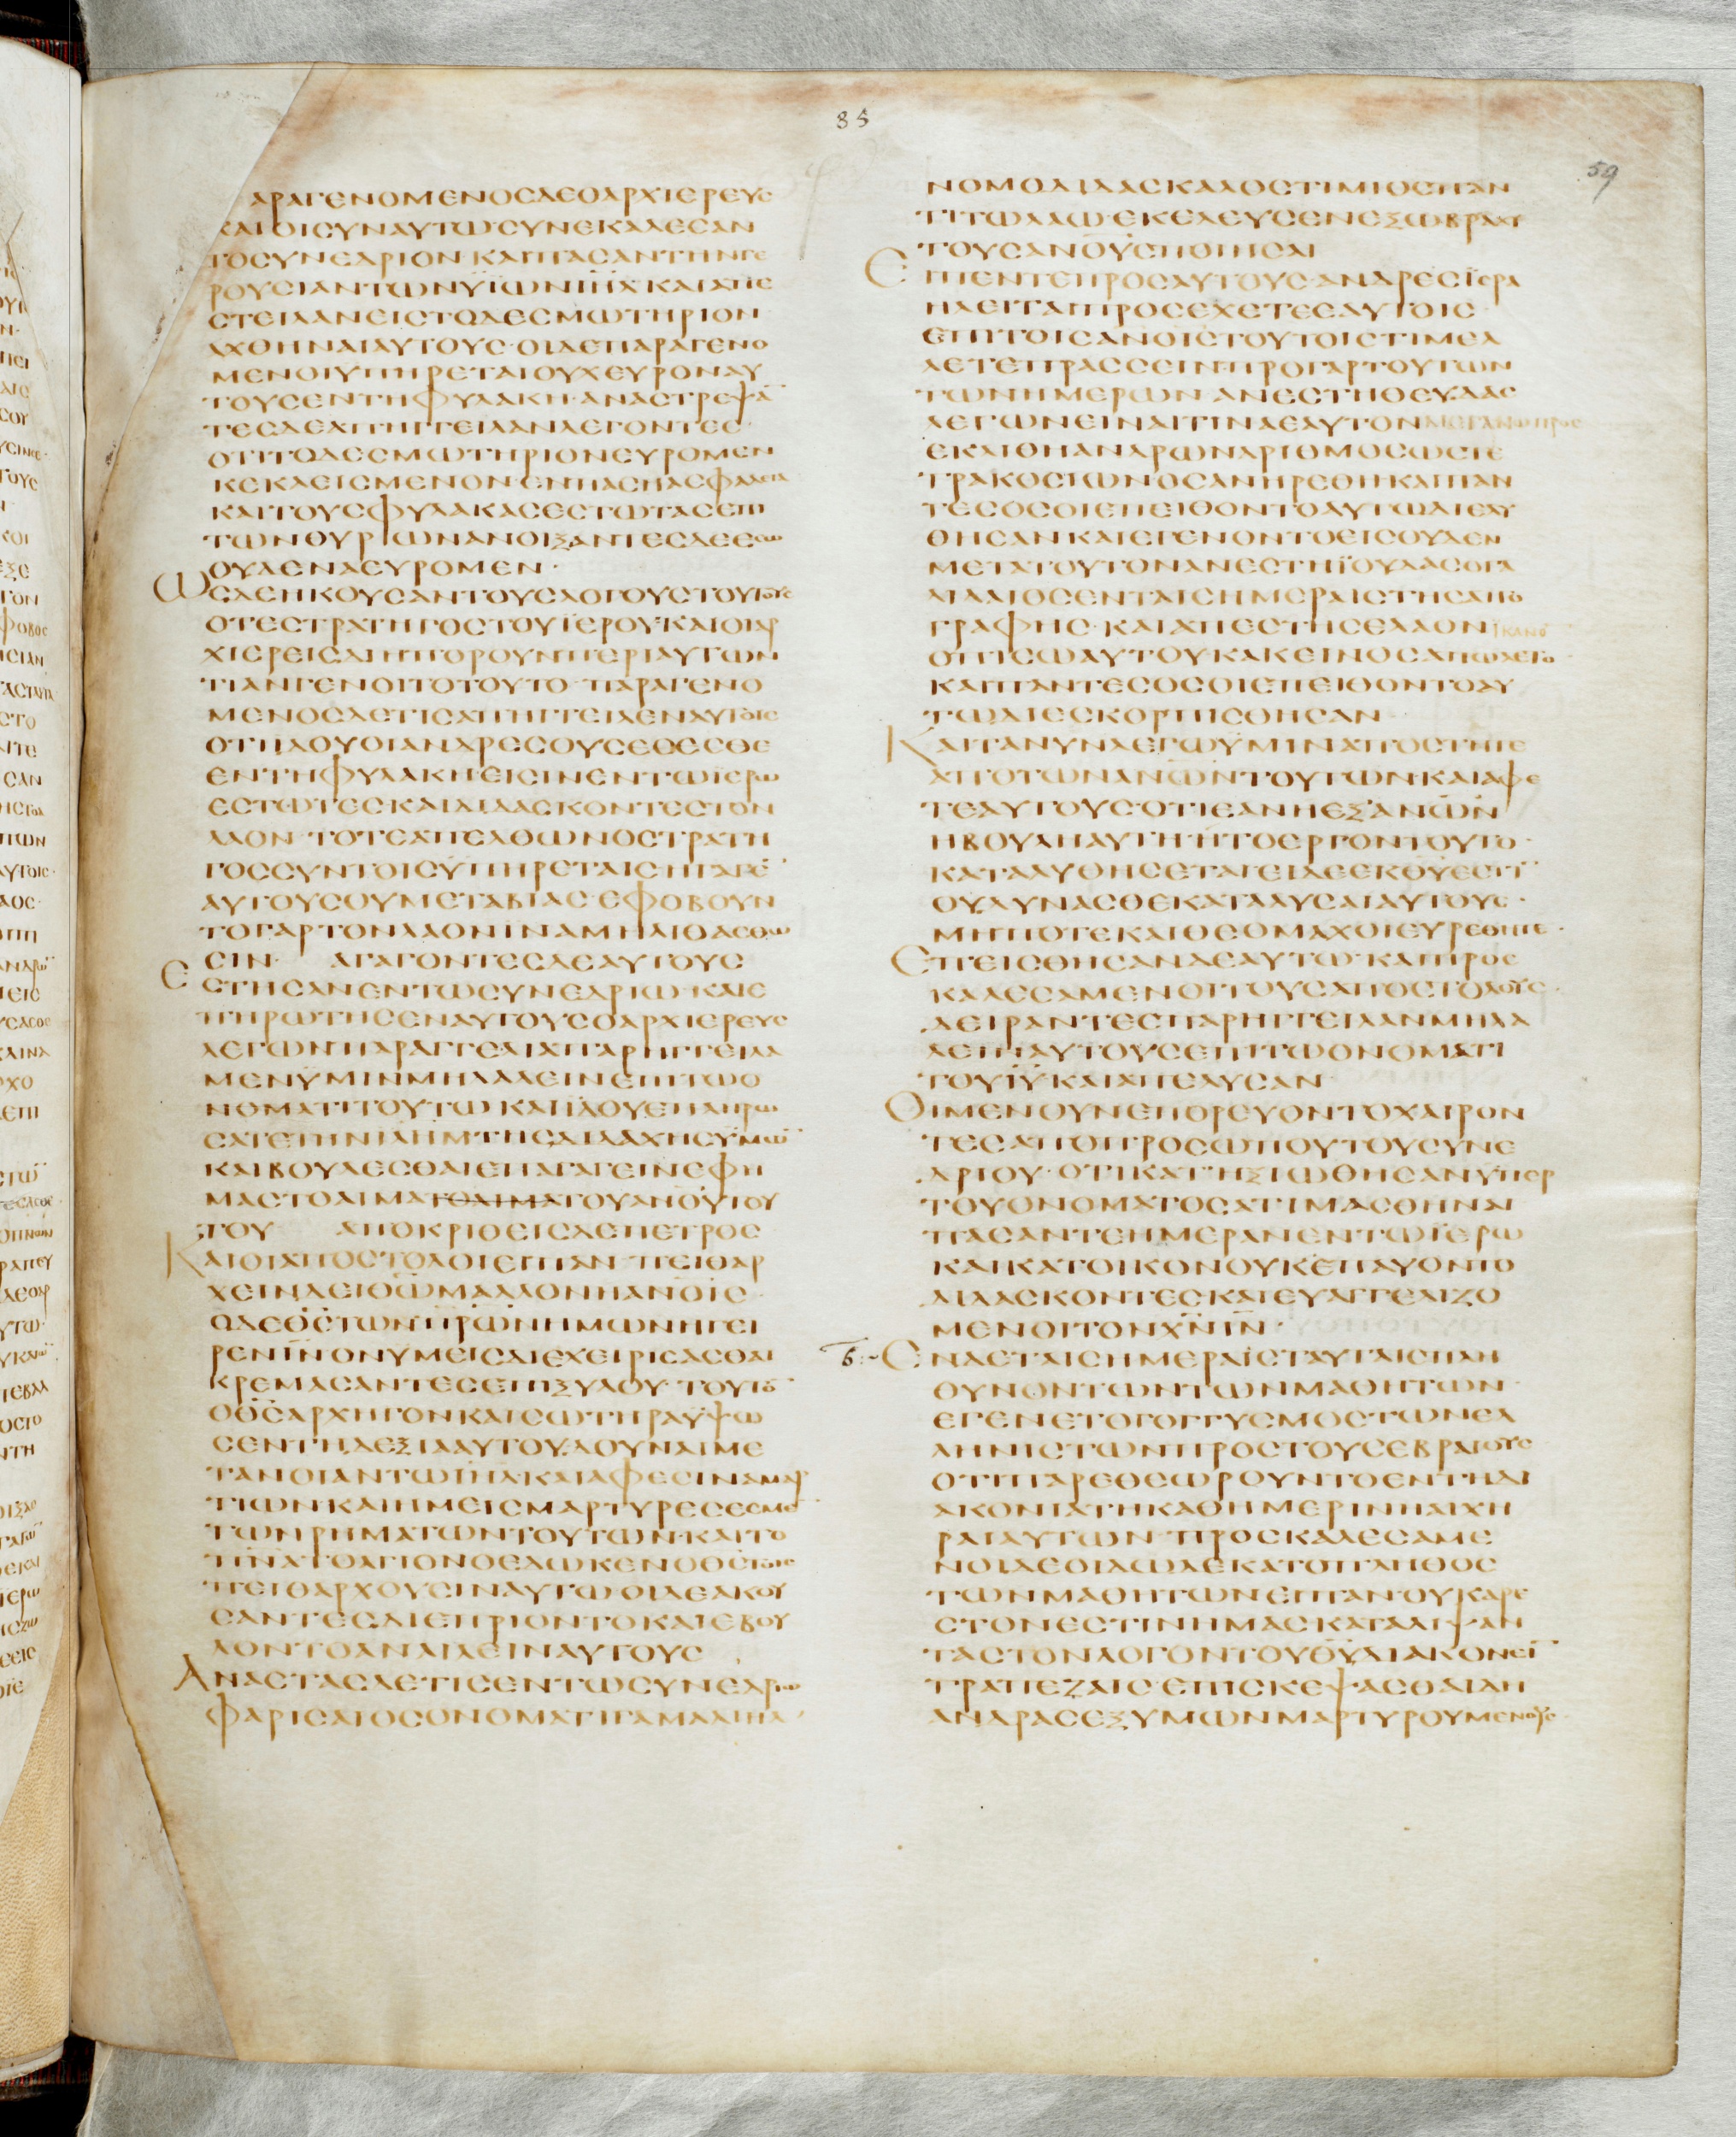 85
59
ΑΡΑΓΕΝΟΜΕΝΟΣΔΕΟΑΡΧΙΕΡΕΥΣ
ΚΑΙΟΙΣΥΝΑΥΤΩ·ΣΥΝΕΚΑΛΕΣΑΝ
ΤΟΣΥΝΕΔΡΙΟΝ·ΚΑΙΠΑΣΑΝΤΗΝΓΕ
ΡΟΥΣΙΑΝΤΩΝΥΪΩΝΙΗ̅Λ̅ΚΑΙΑΠΕ
ΣΤΕΙΛΑΝΕΙΣΤΟΔΕΣΜΩΤΗΡΙΟΝ
ΑΧΘΗΝΑΙΑΥΤΟΥΣ·ΟΙΔΕΠΑΡΑΓΕΝΟ
ΜΕΝΟΙΥΠΗΡΕΤΑΙΟΥΧΕΥΡΟΝΑΥ
ΤΟΥΣΕΝΤΗΦΥΛΑΚΗ·ΑΝΑΣΤΡΕΨΑ̅
ΤΕΣΔΕΑΠΗΓΓΕΙΛΑΝΛΕΓΟΝΤΕΣ·
ΟΤΙΤΟΔΕΣΜΩΤΗΡΙΟΝΕΥΡΟΜΕΝ
ΚΕΚΛΕΙΣΜΕΝΟΝ·ΕΝΠΑΣΗΑΣΦΑΛΕΙΑ
ΚΑΙΤΟΥΣΦΥΛΑΚΑΣΕΣΤΩΤΑΣΕΠΙ
ΤΩΝΘΥΡΩΝΑΝΟΙΞΑΝΤΕΣΔΕΕΣΩ
ΟΥΔΕΝΑΕΥΡΟΜΕΝ·
ΩΣΔΕΗΚΟΥΣΑΝΤΟΥΣΛΟΓΟΥΣΤΟΥΤΟΥΣ
ΟΤΕΣΤΡΑΤΗΓΟΣΤΟΥΪΕΡΟΥ·ΚΑΙΟΙΑΡ
ΧΙΕΡΕΙΣΔΙΗΠΟΡΟΥΝΠΕΡΙΑΥΤΩΝ
ΤΙΑΝΓΕΝΟΙΤΟΤΟΥΤΟ·ΠΑΡΑΓΕΝΟ
ΜΕΝΟΣΔΕΤΙΣΑΠΗΓΓΕΙΛΕΝΑΥΤΟΙΣ
ΟΤΙΙΔΟΥΟΙΑΝΔΡΕΣΟΥΣΕΘΕΣΘΕ
ΕΝΤΗΦΥΛΑΚΗ·ΕΙΣΙΝΕΝΤΩΪΕΡΩ
ΕΣΤΩΤΕΣΚΑΙΔΙΔΑΣΚΟΝΤΕΣΤΟΝ
ΛΑΟΝ·ΤΟΤΕΑΠΕΛΘΩΝΟΣΤΡΑΤΗ
ΓΟΣΣΥΝΤΟΙΣΥΠΗΡΕΤΑΙΣΗΓΑΓΕ̅
ΑΥΤΟΥΣΟΥΜΕΤΑΒΙΑΣ·ΕΦΟΒΟΥΝ
ΤΟΓΑΡΤΟΝΛΑΟΝΙΝΑΜΗΛΙΘΑΣΘΩ
ΣΙΝ ΑΓΑΓΟΝΤΕΣΔΕΑΥΤΟΥΣ
ΕΣΤΗΣΑΝΕΝΤΩΣΥΝΕΔΡΙΩ·ΚΑΙΕ
ΠΗΡΩΤΗΣΕΝΑΥΤΟΥΣΟΑΡΧΙΕΡΕΥΣ
ΛΕΓΩΝΠΑΡΑΓΓΕΛΙΑΠΑΡΗΓΓΕΙΛΑ
ΜΕΝΥΜΙΝΜΗΛΑΛΕΙΝΕΠΙΤΩΟ
ΝΟΜΑΤΙΤΟΥΤΩ·ΚΑΙΙΔΟΥΕΠΛΗΡΩ
ΣΑΤΕΤΗΝΙΛΗΜΤΗΣΔΙΔΑΧΗΣΥΜΩ̅
ΚΑΙΒΟΥΛΕΣΘΑΙΕΠΑΓΑΓΕΙΝΕΦΗ
ΜΑΣΤΟΑΙΜΑΤΟΑΙΜΑΤΟΥΑΝΟΥΤΟΥ
ΤΟΥ ΑΠΟΚΡΙΘΕΙΣΔΕΠΕΤΡΟΣ
ΚΑΙΟΙΑΠΟΣΤΟΛΟΙΕΙΠΑΝ·ΠΕΙΘΑΡ
ΧΕΙΝΔΕΙΘΩ̅ΜΑΛΛΟΝΗΑΝΟΙΣ·
ΟΔΕΘ̅Σ̅ΤΩΝΠΡ̅Ω̅Ν̅ΗΜΩΝΗΓΕΙ
ΡΕΝΙ̅Ν̅ΟΝΥΜΕΙΣΔΙΕΧΕΙΡΙΣΑΣΘΑΙ
ΚΡΕΜΑΣΑΝΤΕΣΕΠΙΞΥΛΟΥ·ΤΟΥΤΟ̅
ΟΘ̅Σ̅ΑΡΧΗΓΟΝΚΑΙΣΩΤΗΡΑΥΨΩ
ΣΕΝΤΗΔΕΞΙΑΑΥΤΟΥ·ΔΟΥΝΑΙΜΕ
ΤΑΝΟΙΑΝΤΩΙ̅Η̅Λ̅·ΚΑΙΑΦΕΣΙΝΑΜΑΡ
ΤΙΩΝ·ΚΑΙΗΜΕΙΣΜΑΡΤΥΡΕΣΕΣΜΕ̅
ΤΩΝΡΗΜΑΤΩΝΤΟΥΤΩΝ·ΚΑΙΤΟ
Π̅Ν̅Α̅ΤΟΑΓΙΟΝΟΕΔΩΚΕΝΟΘ̅Σ̅ΤΟΙΣ
ΠΕΙΘΑΡΧΟΥΣΙΝΑΥΤΩ·ΟΙΔΕΑΚΟΥ
ΣΑΝΤΕΣΔΙΕΠΡΙΟΝΤΟΚΑΙΕΒΟΥ
ΛΟΝΤΟΑΝΑΙΛΕΙΝΑΥΤΟΥΣ
ΑΝΑΣΤΑΣΔΕΤΙΣΕΝΤΩΣΥΝΕΔΡΙΩ
ΦΑΡΙΣΑΙΟΣΟΝΟΜΑΤΙΓΑΜΑΛΙΗΛ·
ΝΟΜΟΔΙΔΑΣΚΑΛΟΣΤΙΜΙΟΣΠΑΝ
ΤΙΤΩΛΑΩ·ΕΚΕΛΕΥΣΕΝΕΞΩΒΡΑΧΥ
ΤΟΥΣΑΝΟΥΣΠΟΙΗΣΑΙ
ΕΙΠΕΝΤΕΠΡΟΣΑΥΤΟΥΣ·ΑΝΔΡΕΣΪΣΡΑ
ΗΛΕΙΤΑΙΠΡΟΣΕΧΕΤΕΕΑΥΤΟΙΣ·
ΕΠΙΤΟΙΣΑΝΟΙΣΤΟΥΤΟΙΣΤΙΜΕΛ
ΛΕΤΕΠΡΑΣΣΕΙΝ·ΠΡΟΓΑΡΤΟΥΤΩΝ
ΤΩΝΗΜΕΡΩΝ·ΑΝΕΣΤΗΘΕΥΔΑΣ
ΛΕΓΩΝΕΙΝΑΙΤΙΝΑΕΑΥΤΟΝΜΕΓΑΝΩΠΡΟΣ
ΕΚΛΙΘΗΑΝΔΡΩΝΑΡΙΘΜΟΣΩΣΤΕ
ΤΡΑΚΟΣΙΩΝΟΣΑΝΗΡΕΘΗΚΑΙΠΑΝ
ΤΕΣΟΣΟΙΕΠΕΙΘΟΝΤΟΑΥΤΩΔΙΕΛΥ
ΘΗΣΑΝΚΑΙΕΓΕΝΟΝΤΟΕΙΣΟΥΔΕΝ
ΜΕΤΑΤΟΥΤΟΝΑΝΕΣΤΗΪΟΥΔΑΣΟΓΑ
ΛΙΛΑΙΟΣΕΝΤΑΙΣΗΜΕΡΑΙΣΤΗΣΑΠΟ
ΓΡΑΦΗΣ·ΚΑΙΑΠΕΣΤΗΣΕΛΑΟΝΪΚΑΝΟ̅
ΟΠΙΣΩΑΥΤΟΥ·ΚΑΚΕΙΝΟΣΑΠΩΛΕΤΟ·
ΚΑΙΠΑΝΤΕΣΟΣΟΙΕΠΕΙΘΟΝΤΟΑΥ
ΤΩΔΙΕΣΚΟΡΠΙΣΘΗΣΑΝ
ΚΑΙΤΑΝΥΝΛΕΓΩΥΜΙΝΑΠΟΣΤΗΤΕ
ΑΠΟΤΩΝΑΝΩΝΤΟΥΤΩΝ·ΚΑΙΑΦΕ
ΤΕΑΥΤΟΥΣ·ΟΤΙΕΑΝΗΕΞΑΝΩΝ
ΗΒΟΥΛΗΑΥΤΗ·ΗΤΟΕΡΓΟΝΤΟΥΤΟ·
ΚΑΤΑΛΥΘΗΣΕΤΑΙΕΙΔΕΕΚΘ̅Υ̅ΕΣΤΙ̅
ΟΥΔΥΝΑΣΘΕΚΑΤΑΛΥΣΑΙΑΥΤΟΥΣ·
ΜΗΠΟΤΕΚΑΙΘΕΟΜΑΧΟΙΕΥΡΕΘΗΤΕ·
ΕΠΕΙΣΘΗΣΑΝΔΕΑΥΤΩ·ΚΑΙΠΡΟΣ
ΚΑΛΕΣΑΜΕΝΟΙΤΟΥΣΑΠΟΣΤΟΛΟΥΣ·
ΔΕΙΡΑΝΤΕΣΠΑΡΗΓΓΕΙΛΑΝΜΗΛΑ
ΛΕΙΝΑΥΤΟΥΣΕΠΙΤΩΟΝΟΜΑΤΙ
ΤΟΥΙ̅Υ̅ΚΑΙΑΠΕΛΥΣΑΝ
ΟΙΜΕΝΟΥΝΕΠΟΡΕΥΟΝΤΟΧΑΙΡΟΝ
ΤΕΣΑΠΟΠΡΟΣΩΠΟΥΤΟΥΣΥΝΕ
ΔΡΙΟΥ·ΟΤΙΚΑΤΗΞΙΩΘΗΣΑΝΥΠΕΡ
ΤΟΥΟΝΟΜΑΤΟΣΑΤΙΜΑΣΘΗΝΑΙ
ΠΑΣΑΝΤΕΗΜΕΡΑΝΕΝΤΩΪΕΡΩ
ΚΑΙΚΑΤΟΙΚΟΝΟΥΚΕΠΑΥΟΝΤΟ
ΔΙΔΑΣΚΟΝΤΕΣΚΑΙΕΥΑΓΓΕΛΙΖΟ
ΜΕΝΟΙΤΟΝΧ̅Ν̅Ι̅Ν̅·
ΕΝΔΕΤΑΙΣΗΜΕΡΑΙΣΤΑΥΤΑΙΣΠΛΗ
ΘΥΝΟΝΤΩΝΤΩΝΜΑΘΗΤΩΝ·
ΕΓΕΝΕΤΟΓΟΓΓΥΣΜΟΣΤΩΝΕΛ
ΛΗΝΙΣΤΩΝΠΡΟΣΤΟΥΣΕΒΡΑΙΟΥΣ
ΟΤΙΠΑΡΕΘΕΩΡΟΥΝΤΟΕΝΤΗΔΙ
ΑΚΟΝΙΑΤΗΚΑΘΗΜΕΡΙΝΗΑΙΧΗ
ΡΑΙΑΥΤΩΝ·ΠΡΟΣΚΑΛΕΣΑΜΕ
ΝΟΙΔΕΟΙΔΩΔΕΚΑΤΟΠΛΗΘΟΣ
ΤΩΝΜΑΘΗΤΩΝΕΙΠΑΝ·ΟΥΚΑΡΕ
ΣΤΟΝΕΣΤΙΝΗΜΑΣΚΑΤΑΛΙΨΑΝ
ΤΑΣΤΟΝΛΟΓΟΝΤΟΥΘ̅Υ̅ΔΙΑΚΟΝΕΙ̅
ΤΡΑΠΕΖΑΙΣ·ΕΠΙΣΚΕΨΑΣΘΑΙΔΗ
ΑΝΔΡΑΣΕΞΥΜΩΝΜΑΡΤΥΡΟΥΜΕΝΟΥΣ·